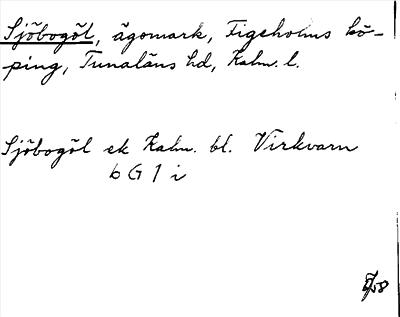 Sjöbogöl, ägomark, Figeholms kö-
ping, Tunaläns hd, Kalm. l.
Sjöbogöl ek Kalm. bl. Virkvarn
6 G 1 i